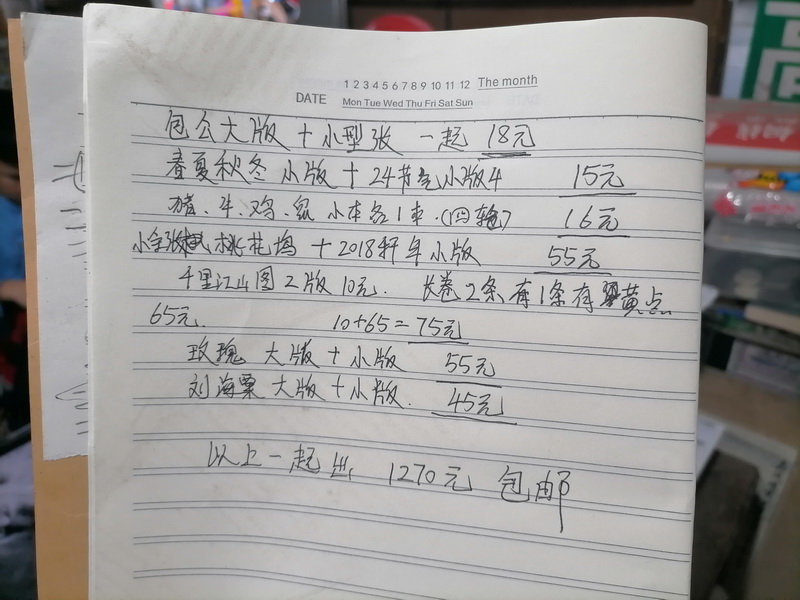 1 2 3 4 5 6 7 8 9 10 11 12 The month
DATE Mon Tue Wed Thu Fri Sat Sun
包公大版+小型张 一起 18元
春夏秋冬小版+24节气小版4 15元
猪、牛、鸡、鼠 小本各1本.(四轮) 16元
桃花坞+2018拜年小版 55元
千里江山图2版10元. 长卷2条有1条有黄点
65元. 10+65=75元
玫瑰 大版+小版 55元
刘海粟大版+小版. 45元
以上一起出 1270元 包邮